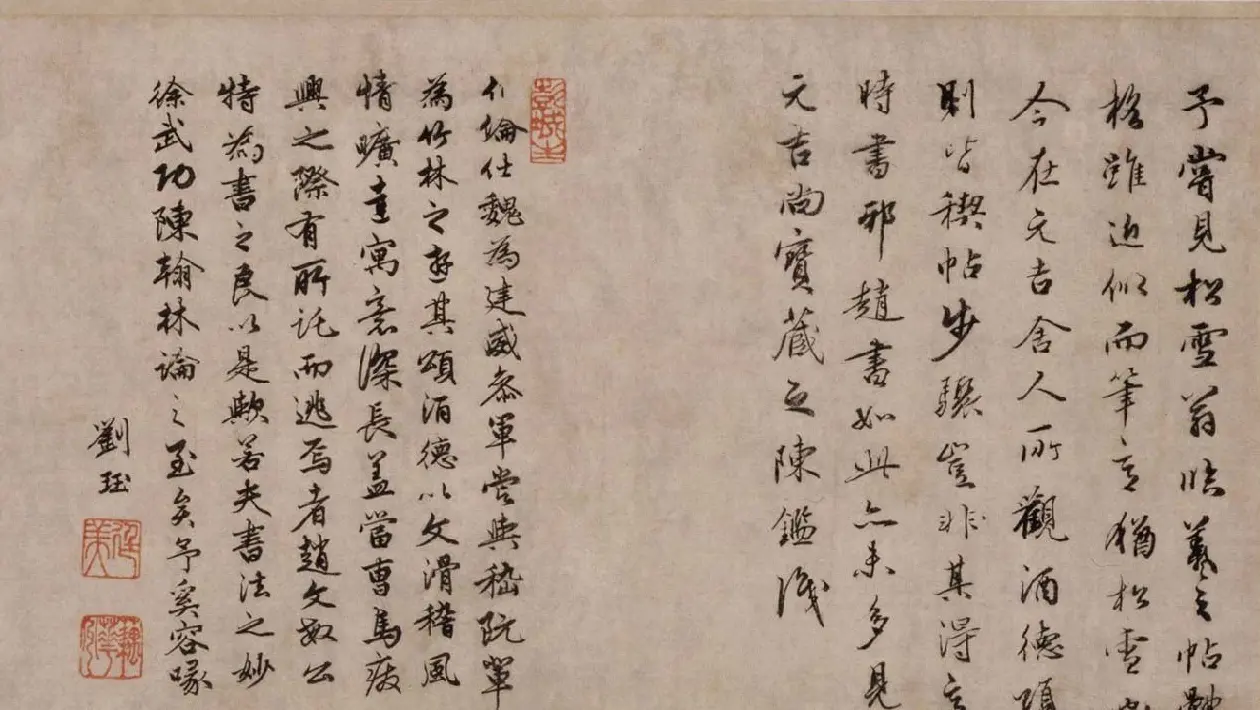 予嘗見松雪翁臨羲之帖
格雖近似而筆意猶松雪
今在元吉舍人所觀酒德頌
則皆禊帖步驟豈非其得意
時書邪趙書如此亦未多見
元吉尚寶藏之陳鑑識
彭城
伯倫仕魏為建威參軍嘗與嵇阮輩
為竹林之游其頌酒德以文滑稽風
情曠達寓意深長蓋當曹馬廢
興之際有所託而逃焉者趙文敏公
特為書之良以是歟若夫書法之妙
徐武功陳翰林論之至矣予奚容喙
劉珏
廷美